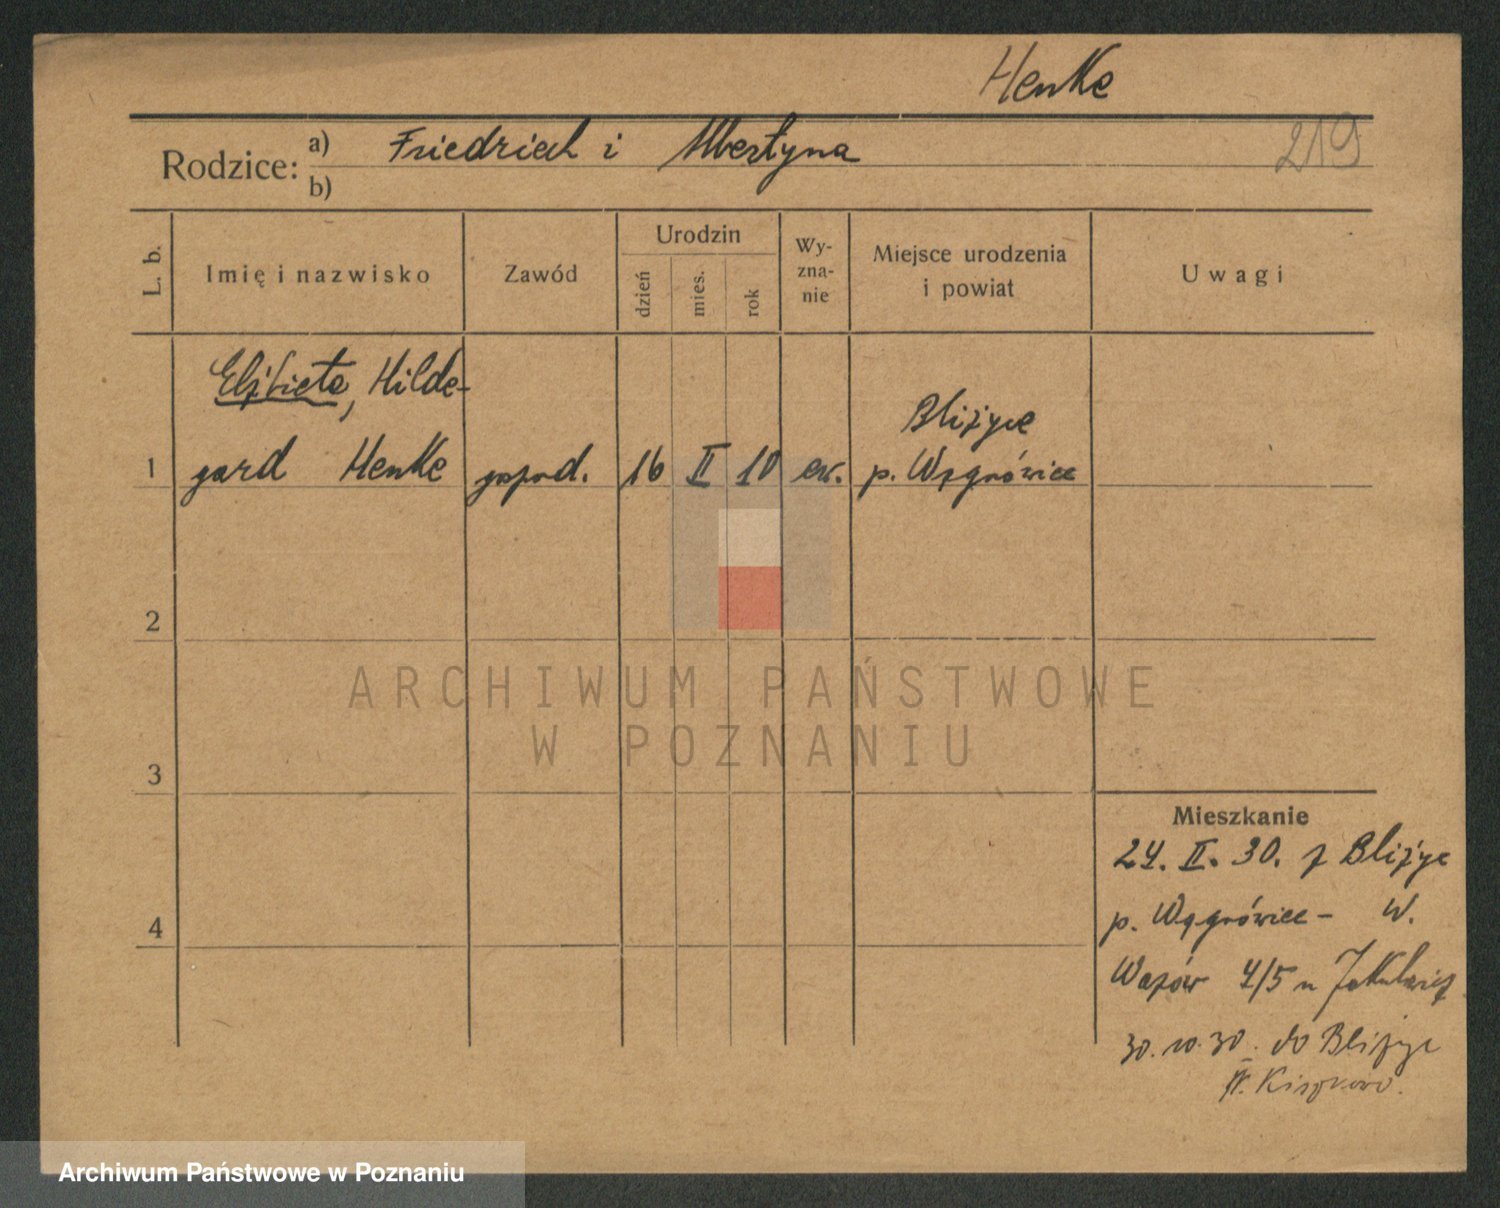 Henke
219
Rodzice: a) Friedrich i Albertyna
b)
L. b. Imię i nazwisko Zawód Urodzin dzień mies. rok Wyznanie Miejsce urodzenia i powiat Uwagi
Elżbieta, Hilde-
Bliżyce
1 gard Henke gospod. 16 II 10 ew. p. Wągrówiec
2
3
4
Mieszkanie
24. II. 30. z Bliżyc
p. Wągrówiec - W.
Wazów 4/5 u
30.10.30. do Bliżyc
p. Kiszkowo.
ARCHIWUM PAŃSTWOWE
W POZNANIU
Archiwum Państwowe w Poznaniu